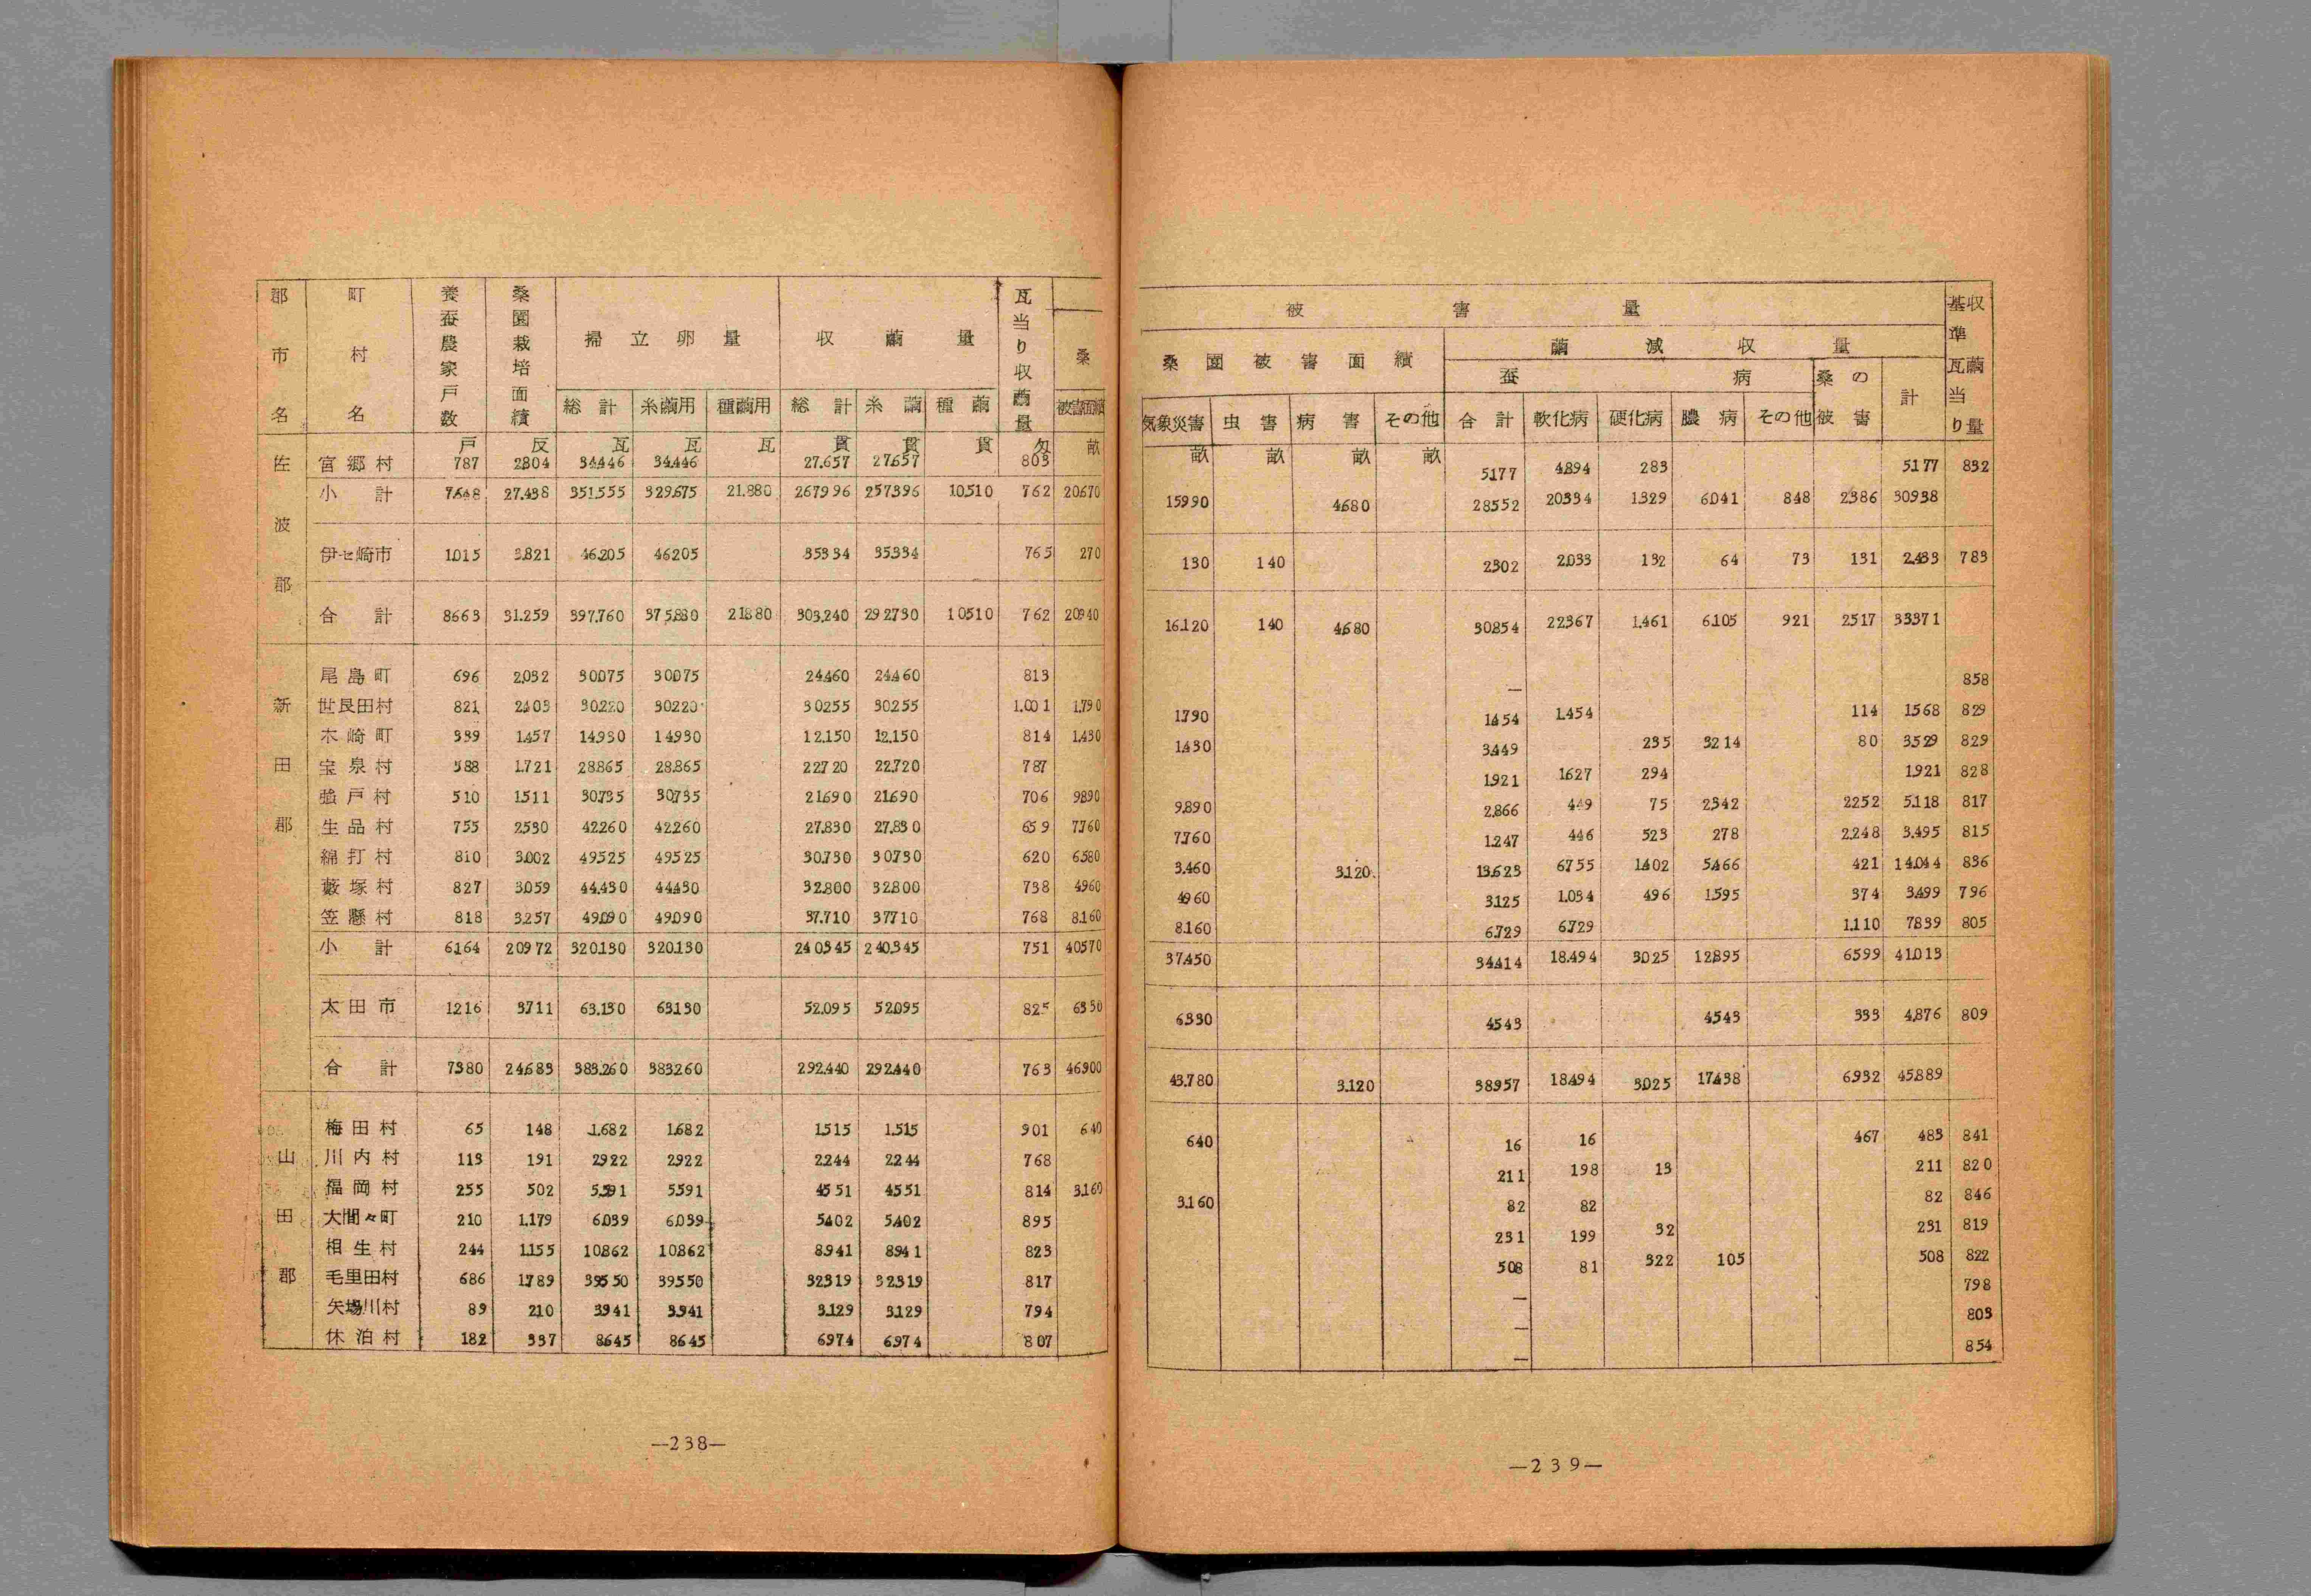 郡市名 町村名 養蚕農家戸数 桑園栽培面績 掃立卵量 収繭量 瓦当り収繭量 桑
総計 糸繭用 種繭用 総計 糸繭 種繭 被害面績
戸 反 瓦 瓦 瓦 貫 貫 貫 匁 畝
佐波郡
宮郷村 787 2804 34446 34.446 27.657 27.657 803
小計 7.648 27.438 351.555 329.675 21.880 267996 257396 10.510 762 20.670
伊セ崎市 1.015 3.821 46.205 46205 35334 35.334 765 270
合計 8663 31.259 397.760 375.880 21.880 303.240 292.730 10510 762 20940
新田郡
尾島町 696 2.032 30.075 30.075 24.460 24.460 813
世良田村 821 2403 30220 30220 30255 30.255 1.001 1.790
木崎町 339 1.457 14.930 14930 12.150 12.150 814 1.430
宝泉村 588 1.721 28.865 28.865 22.720 22.720 787
強戸村 510 1.511 30.735 30.735 21.690 21.690 706 9.890
生品村 755 2.530 42.260 42.260 27.830 27.830 659 7.760
綿打村 810 3.002 49.525 49525 30.730 30.730 620 6.580
藪塚村 827 3.059 44.430 44.430 32.800 32.800 738 4.960
笠懸村 818 3.257 49.090 49.090 37.710 37.710 768 8.160
小計 6.164 20972 320.130 320.130 240.345 240.345 751 40570
太田市 1216 3.711 63.130 63.130 52.095 52.095 825 6330
合計 7.380 24.683 383.260 383260 292.440 292.440 763 46900
山田郡
梅田村 65 148 1.682 1.682 1.515 1.515 901 640
川内村 113 191 2922 2.922 2.244 2.244 768
福岡村 255 502 5.591 5.591 4551 4551 814 3.160
大間々町 210 1.179 6.039 6.039 5.402 5.402 895
相生村 244 1.155 10.862 10.862 8.941 8.941 823
毛里田村 686 1.789 39550 39.550 32.319 32.319 817
矢場川村 89 210 3.941 3.941 3.129 3.129 794
休泊村 182 337 8.645 8645 6.974 6.974 807
—238—
被害量 基準瓦当り 収繭量
桑園被害面績 繭減収量
蚕病 桑の被害 計
気象災害 虫害 病害 その他 合計 軟化病 硬化病 膿病 その他
畝 畝 畝 畝
5.177 4.894 283 5.177 832
15.990 4.680 28.552 20.334 1.329 6.041 848 2.386 30938
130 140 2302 2.033 132 64 73 131 2.433 783
16.120 140 4.680 30.854 22367 1.461 6.105 921 2517 33.371
— 858
1.790 1.454 1.454 114 1.568 829
1.430 3.449 235 3214 80 3.529 829
1.921 1.627 294 1.921 828
9.890 2.866 449 75 2.342 2252 5.118 817
7.760 1.247 446 523 278 2.248 3.495 815
3.460 3.120 13.623 6.755 1.402 5.466 421 14.044 836
4.960 3.125 1.034 496 1.595 374 3.499 796
8.160 6.729 6.729 1.110 7.839 805
37.450 34.414 18.494 3025 12.895 6599 41.013
6.330 4543 4.543 333 4.876 809
43.780 3.120 38957 18.494 3.025 17.438 6.932 45.889
640 16 16 467 483 841
211 198 13 211 820
3.160 82 82 82 846
231 199 32 231 819
508 81 322 105 508 822
— 798
— 803
— 854
—239—